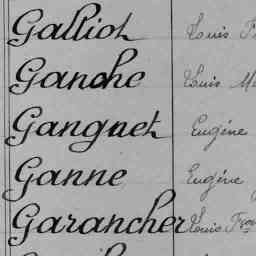 Galliot Louis
Ganche Louis
Gangnet Eugène
Ganne Eugène
Garancher Louis Fçois